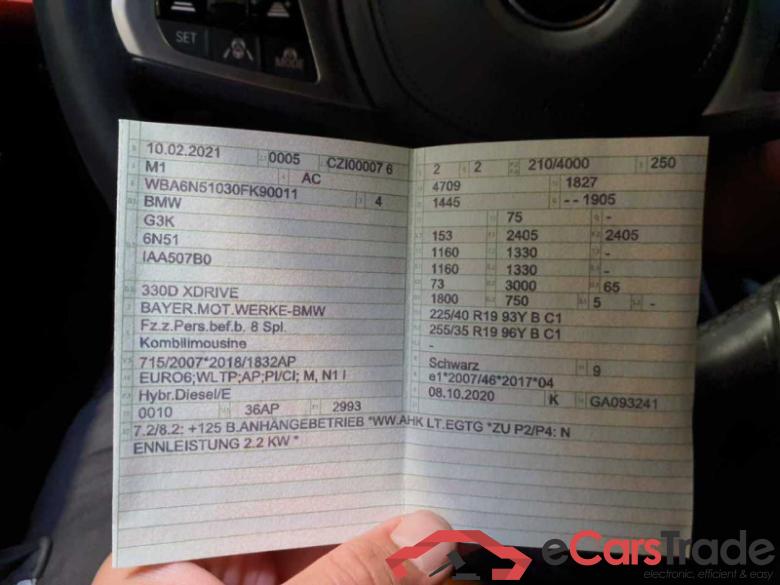 SET
MODE
10.02.2021 0005 CZI00007 6
M1 AC
WBA6N51030FK90011 4
BMW
G3K
6N51
IAA507B0
330D XDRIVE
BAYER.MOT.WERKE-BMW
Fz.z.Pers.bef.b. 8 Spl.
Kombilimousine
715/2007*2018/1832AP
EURO6;WLTP;AP;PI/CI; M, N1 I
Hybr.Diesel/E
0010 36AP 2993
7.2/8.2: +125 B.ANHÄNGEBETRIEB *WW.AHK LT.EGTG *ZU P2/P4: N
ENNLEISTUNG 2.2 KW *
2 2 210/4000 250
4709 1827
1445 - - 1905
75 -
153 2405 2405
1160 1330 -
1160 1330 -
73 3000 65
1800 750 5 -
225/40 R19 93Y B C1
255/35 R19 96Y B C1
-
-
Schwarz 9
e1*2007/46*2017*04
08.10.2020 K GA093241
eCarsTrade
electronic, efficient & easy